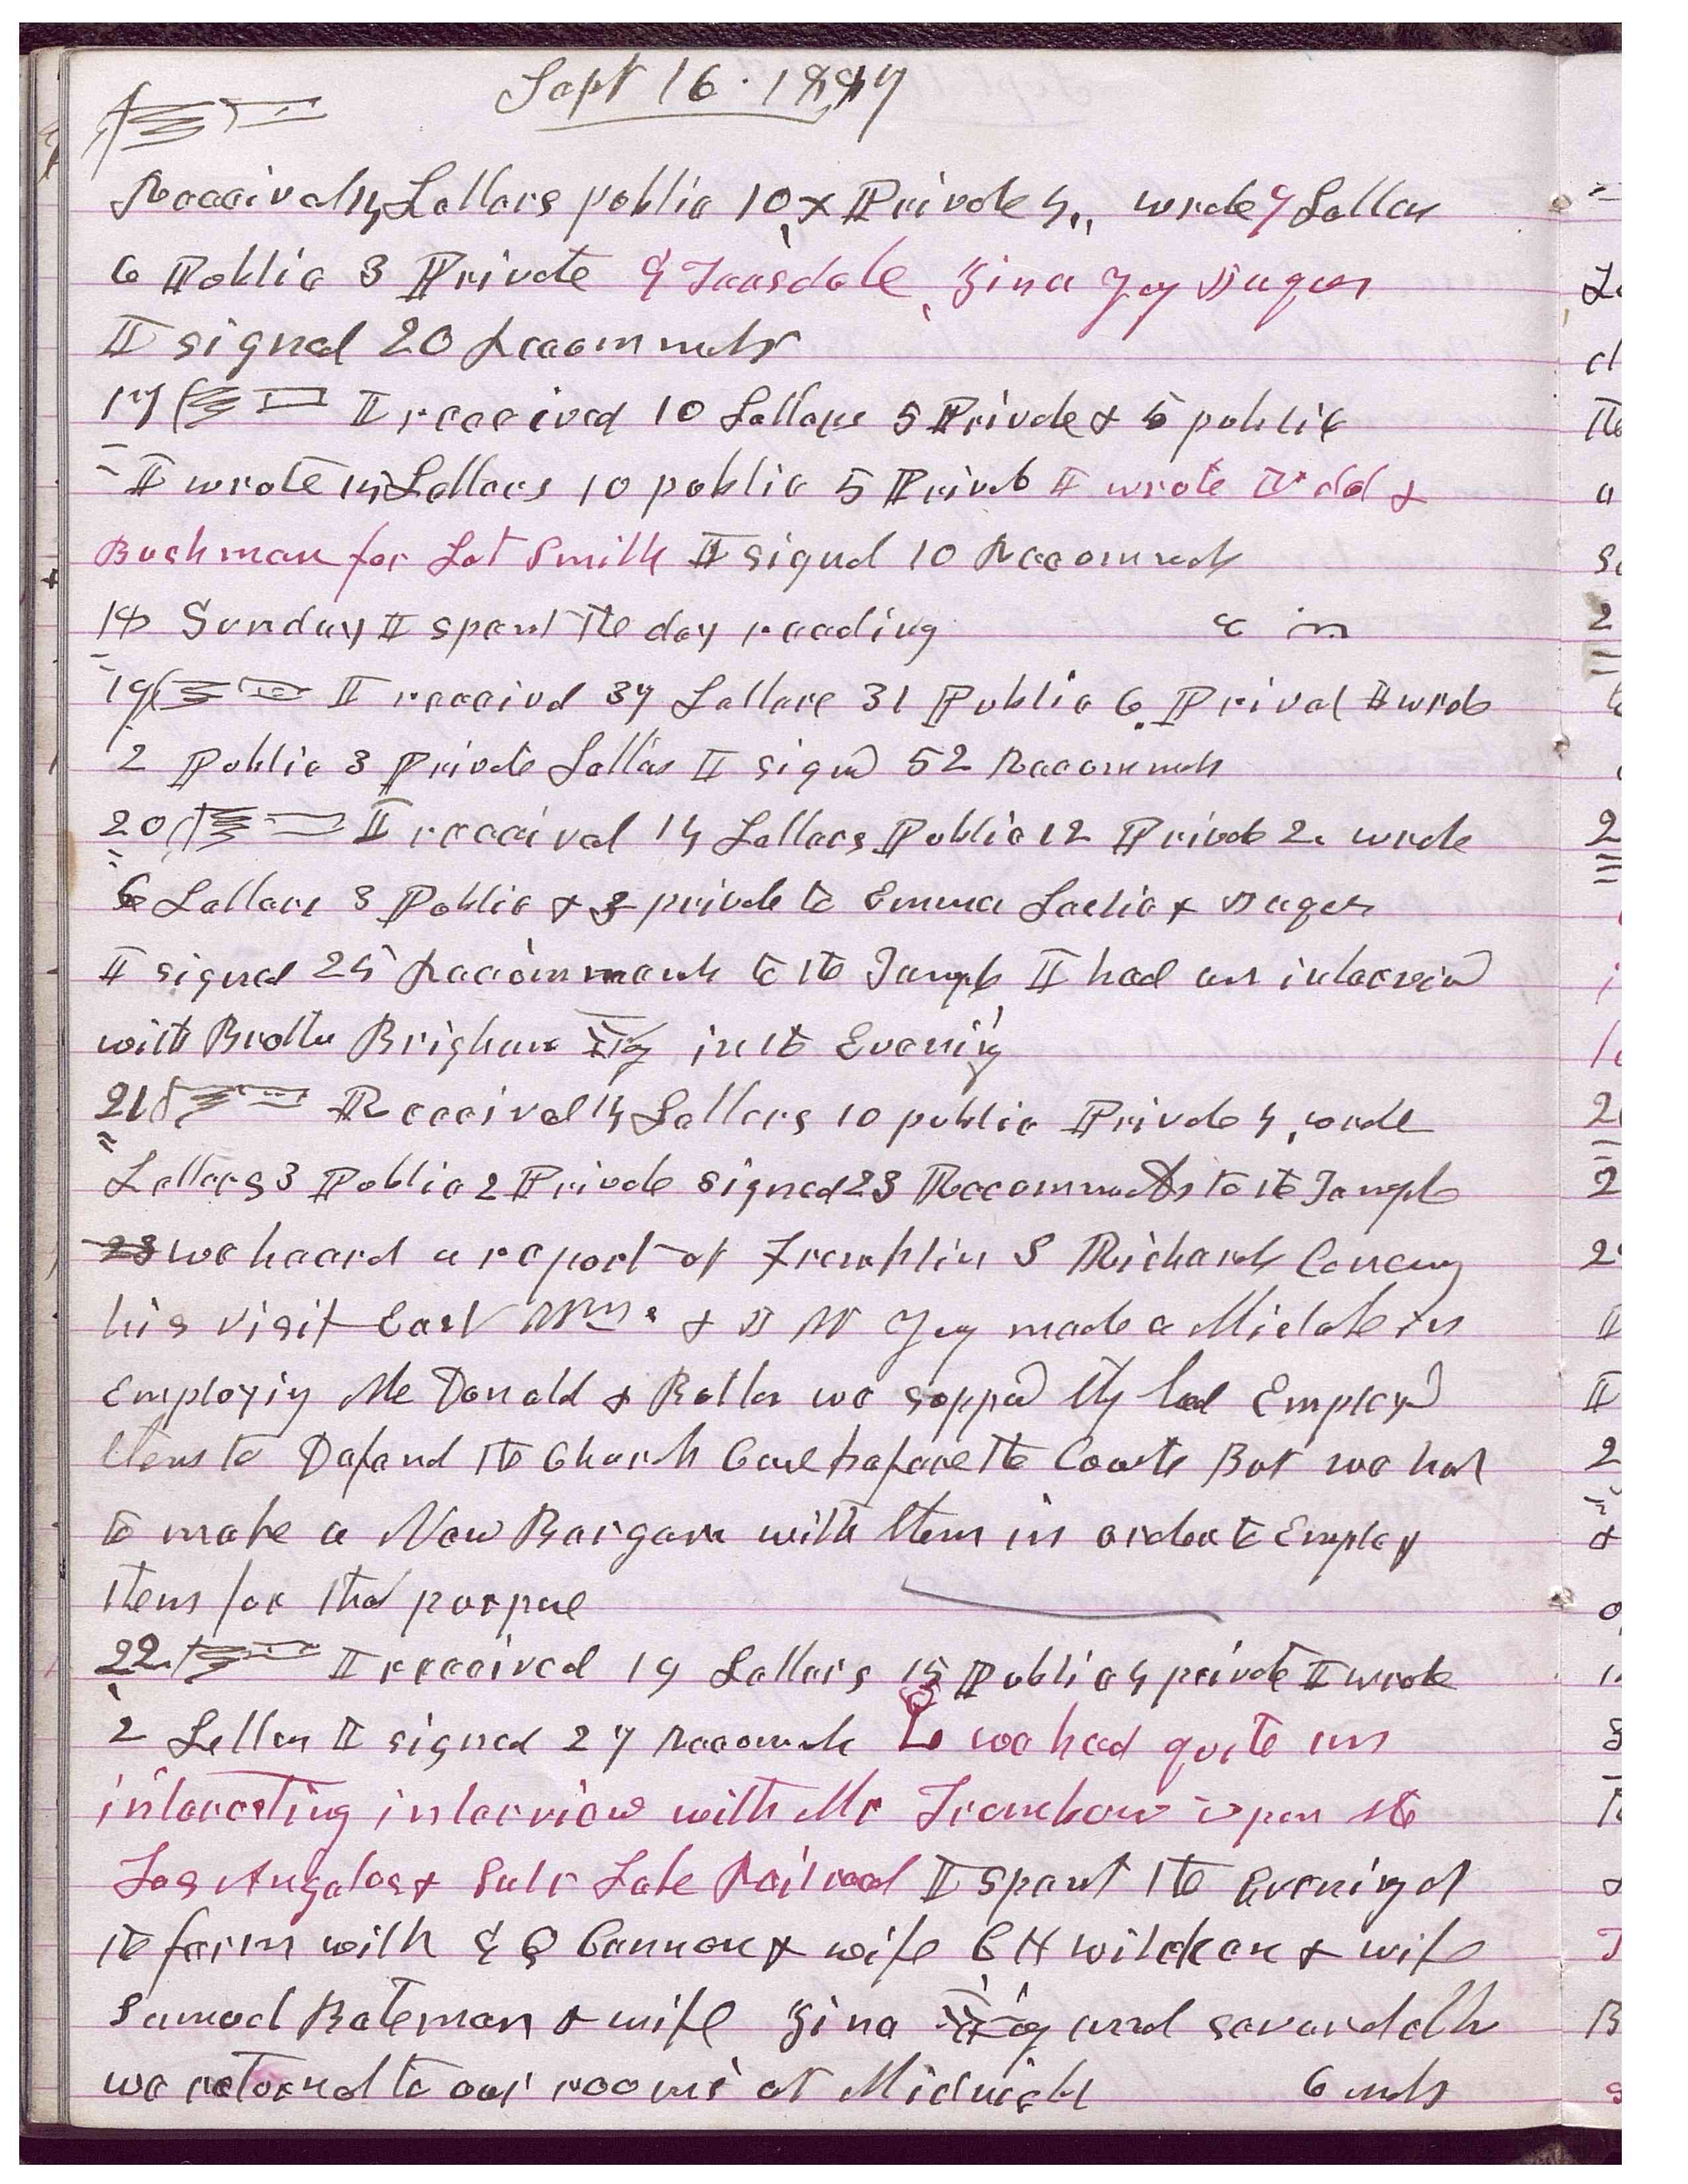 Sept 16. 1887
Received 14 Letters public 10 & Private 4,, wrote 9 Letters
6 Public 3 Private G Teasdale, Zina Yg Duges
I signed 20 Recommds
17 I received 10 Letters 5 Private & 5 public
I wrote 15 Letters 10 public 5 Privt I wrote &
Bushman for Lot Smith I signd 10 Recommds
18 Sunday I spent the day reading 8 m
19 I receivd 37 Letters 31 Public 6 Privat I wrote
2 Public 3 Private Letters I signd 52 Recommds
20 I received 14 Letters Public 12 Private 2. wrote
6 Letters 3 Public & 3 private to Emma &
I signed 25 Recommends to the Temple I had an interview
with Brother Brigham Yg in the Evening
21 Received 14 Letters 10 public Private 4, wrote
Letters 3 Public 2 Private signed 23 Recommds to the Temple
23 we heard a report of Franklin S Richards Concerng
his visit East & W Yg made a Mistake in
Employing McDonald & Butler we supposd thy had Employd
them to Defend the Church Case before the Courts But we had
to make a New Bargan with them in order to Employ
them for that purpose
22. I received 19 Letters 15 Public 4 private I wrote
2 Letters I signed 27 Recomds we had quite an
interesting interview with Mr upon the
Los Angeles & Salt Lake Railroad I spent the Evening at
the farm with G Q Cannon & wife C H wilcken & wife
Samuel Bateman & wife Zina Yg and several others
we returned to our rooms at Midnight 6 mls